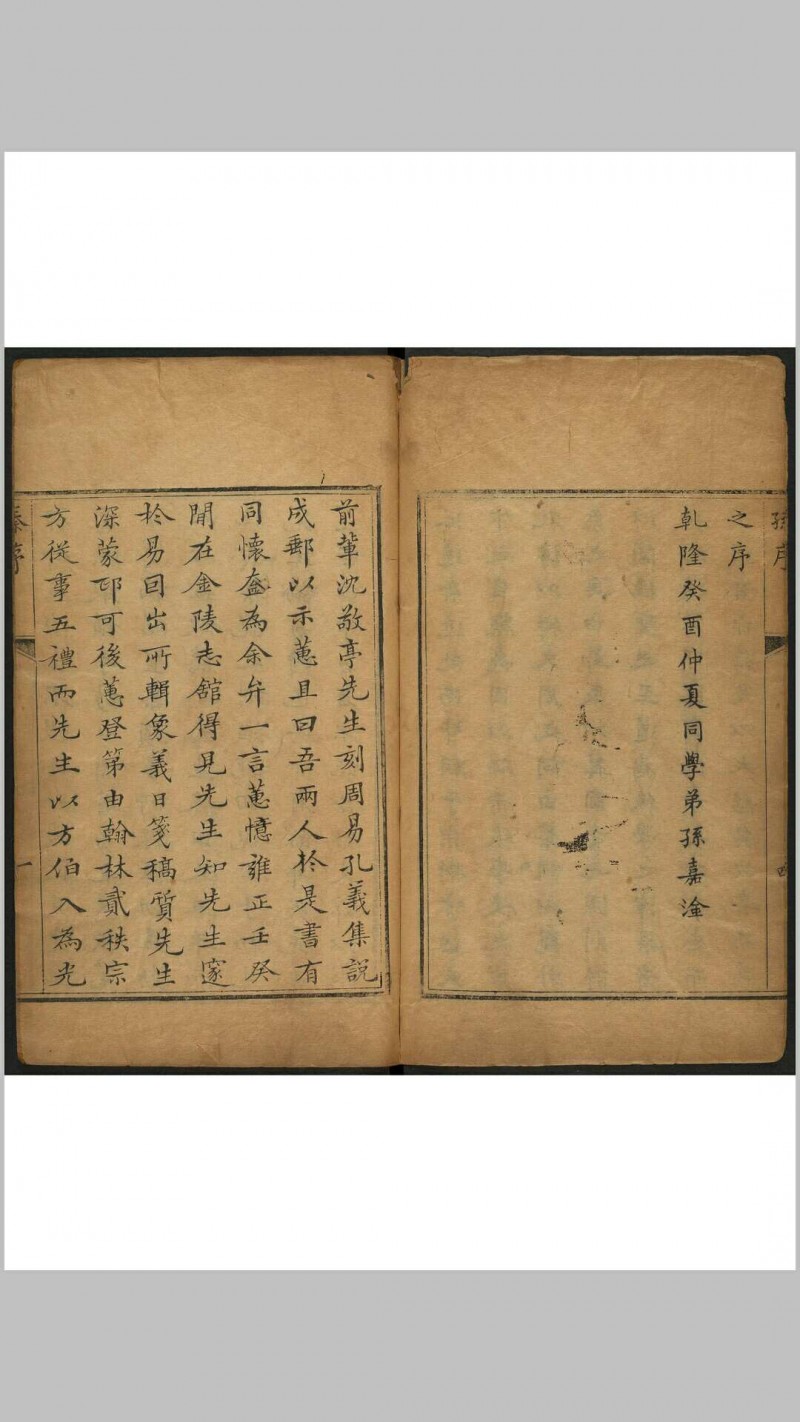 孫序
之序
乾隆癸酉仲夏同學弟孫嘉淦
前輩沈敬亭先生刻周易孔義集說
成郵以示蕙且曰吾兩人於是書有
同懷盍為余弁一言蕙憶雍正壬癸
閒在金陵志舘得見先生知先生邃
於易因出所輯象義日箋稿質先生
深蒙印可後蕙登第由翰林貳秩宗
方從事五禮而先生以方伯入為光
秦序
一